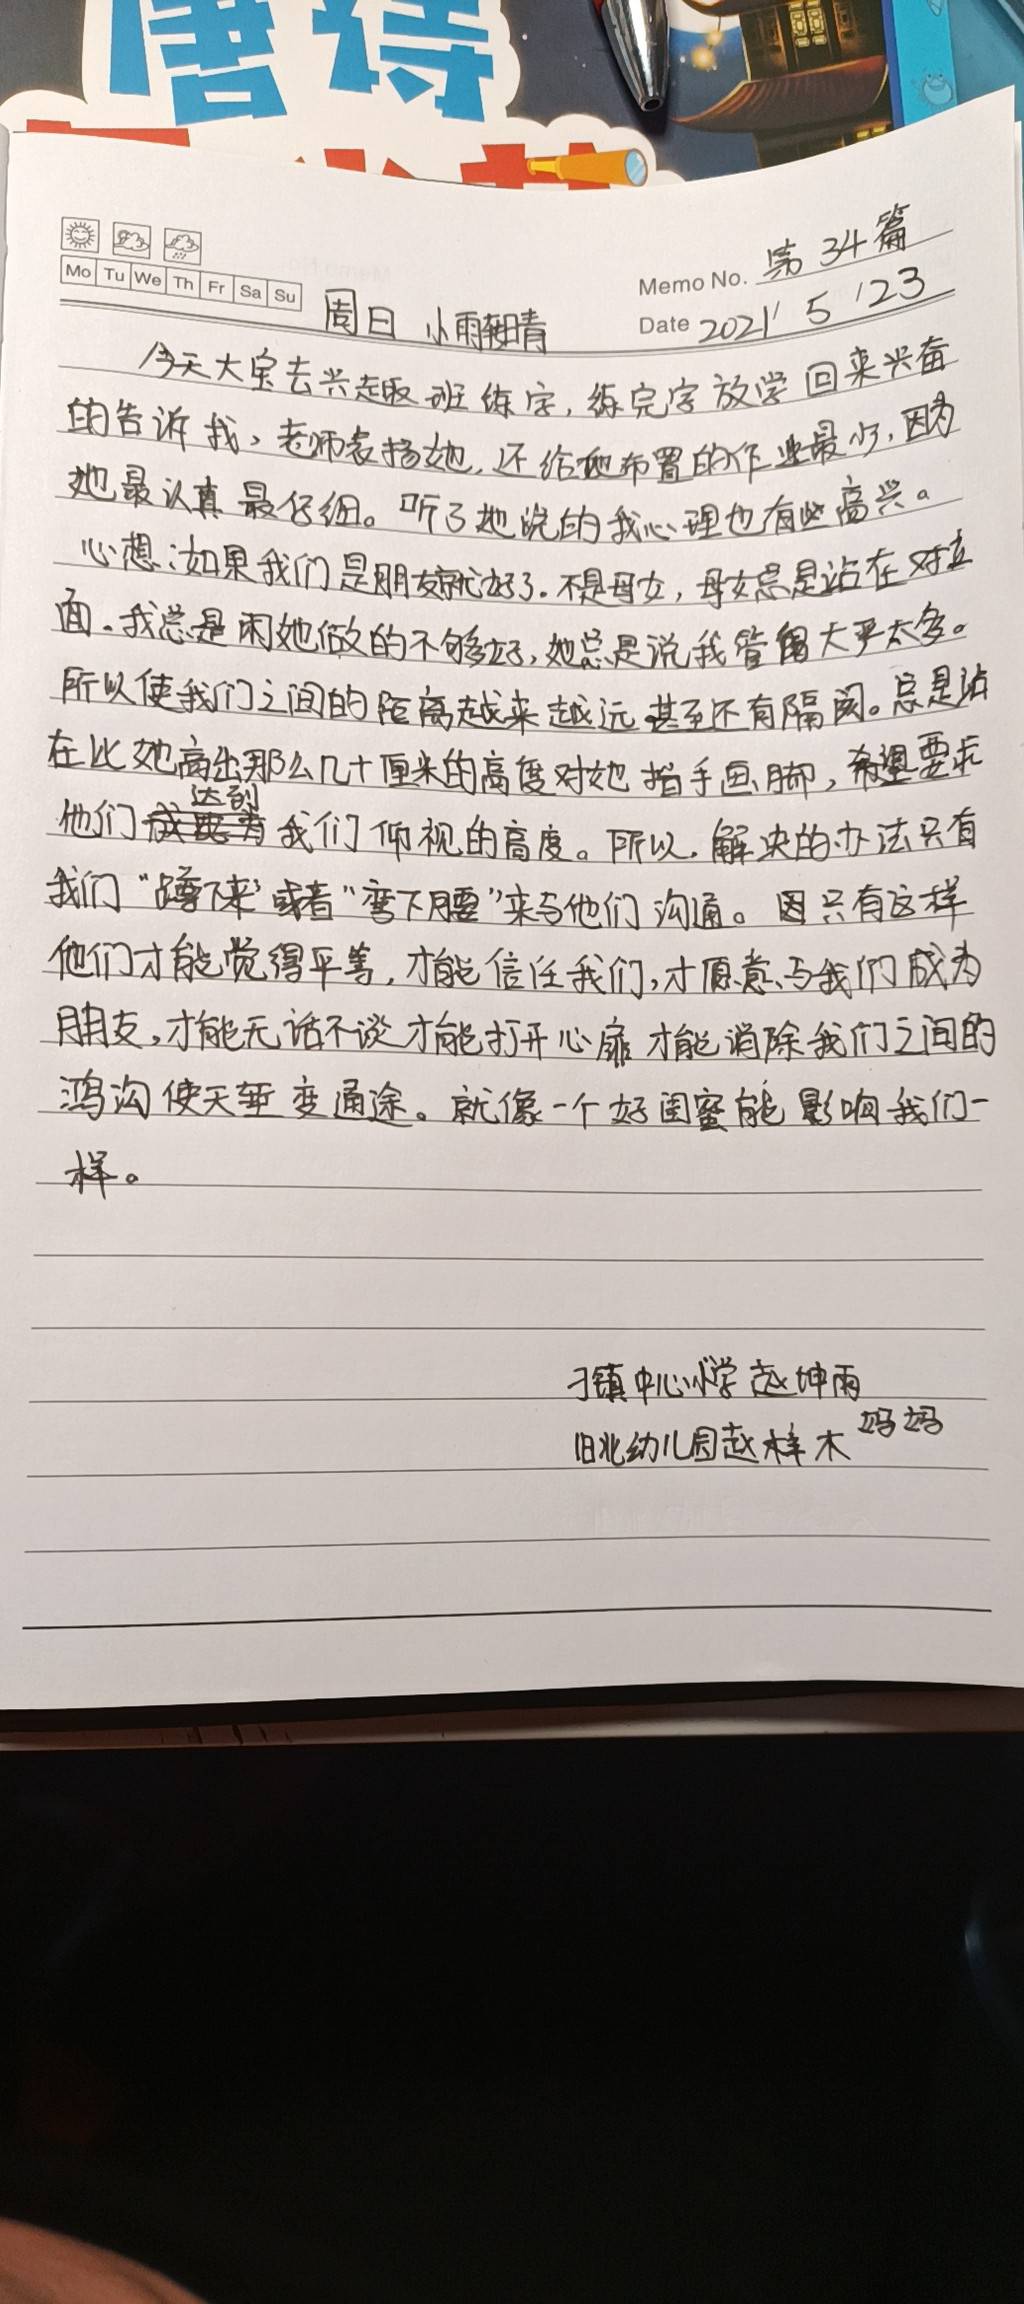 唐诗
Mo Tu We Th Fr Sa Su
Memo No. 第34篇
Date 2021 / 5 / 23
周日 小雨转晴
今天大宝去兴趣班练字,练完字放学回来兴奋
的告诉我,老师表扬她,还给她布置的作业最少,因为
她最认真最仔细。听了她说的我心理也有些高兴。
心想:如果我们是朋友就好了.不是母女,母女总是站在对立
面.我总是闲她做的不够好,她总是说我管得大平太多。
所以使我们之间的距离越来越远甚至还有隔阂。总是站
在比她高出那么几十厘米的高度对她指手画脚,希望要求
他们达到我们仰视的高度。所以.解决的办法只有
我们“蹲下来”或者“弯下腰”来与他们沟通。因只有这样
他们才能觉得平等,才能信任我们,才愿意与我们成为
朋友,才能无话不谈才能打开心扉才能消除我们之间的
鸿沟使天堑变通途。就像一个好闺蜜能影响我们一
样。
刁镇中心小学赵坤雨
旧北幼儿园赵梓木妈妈